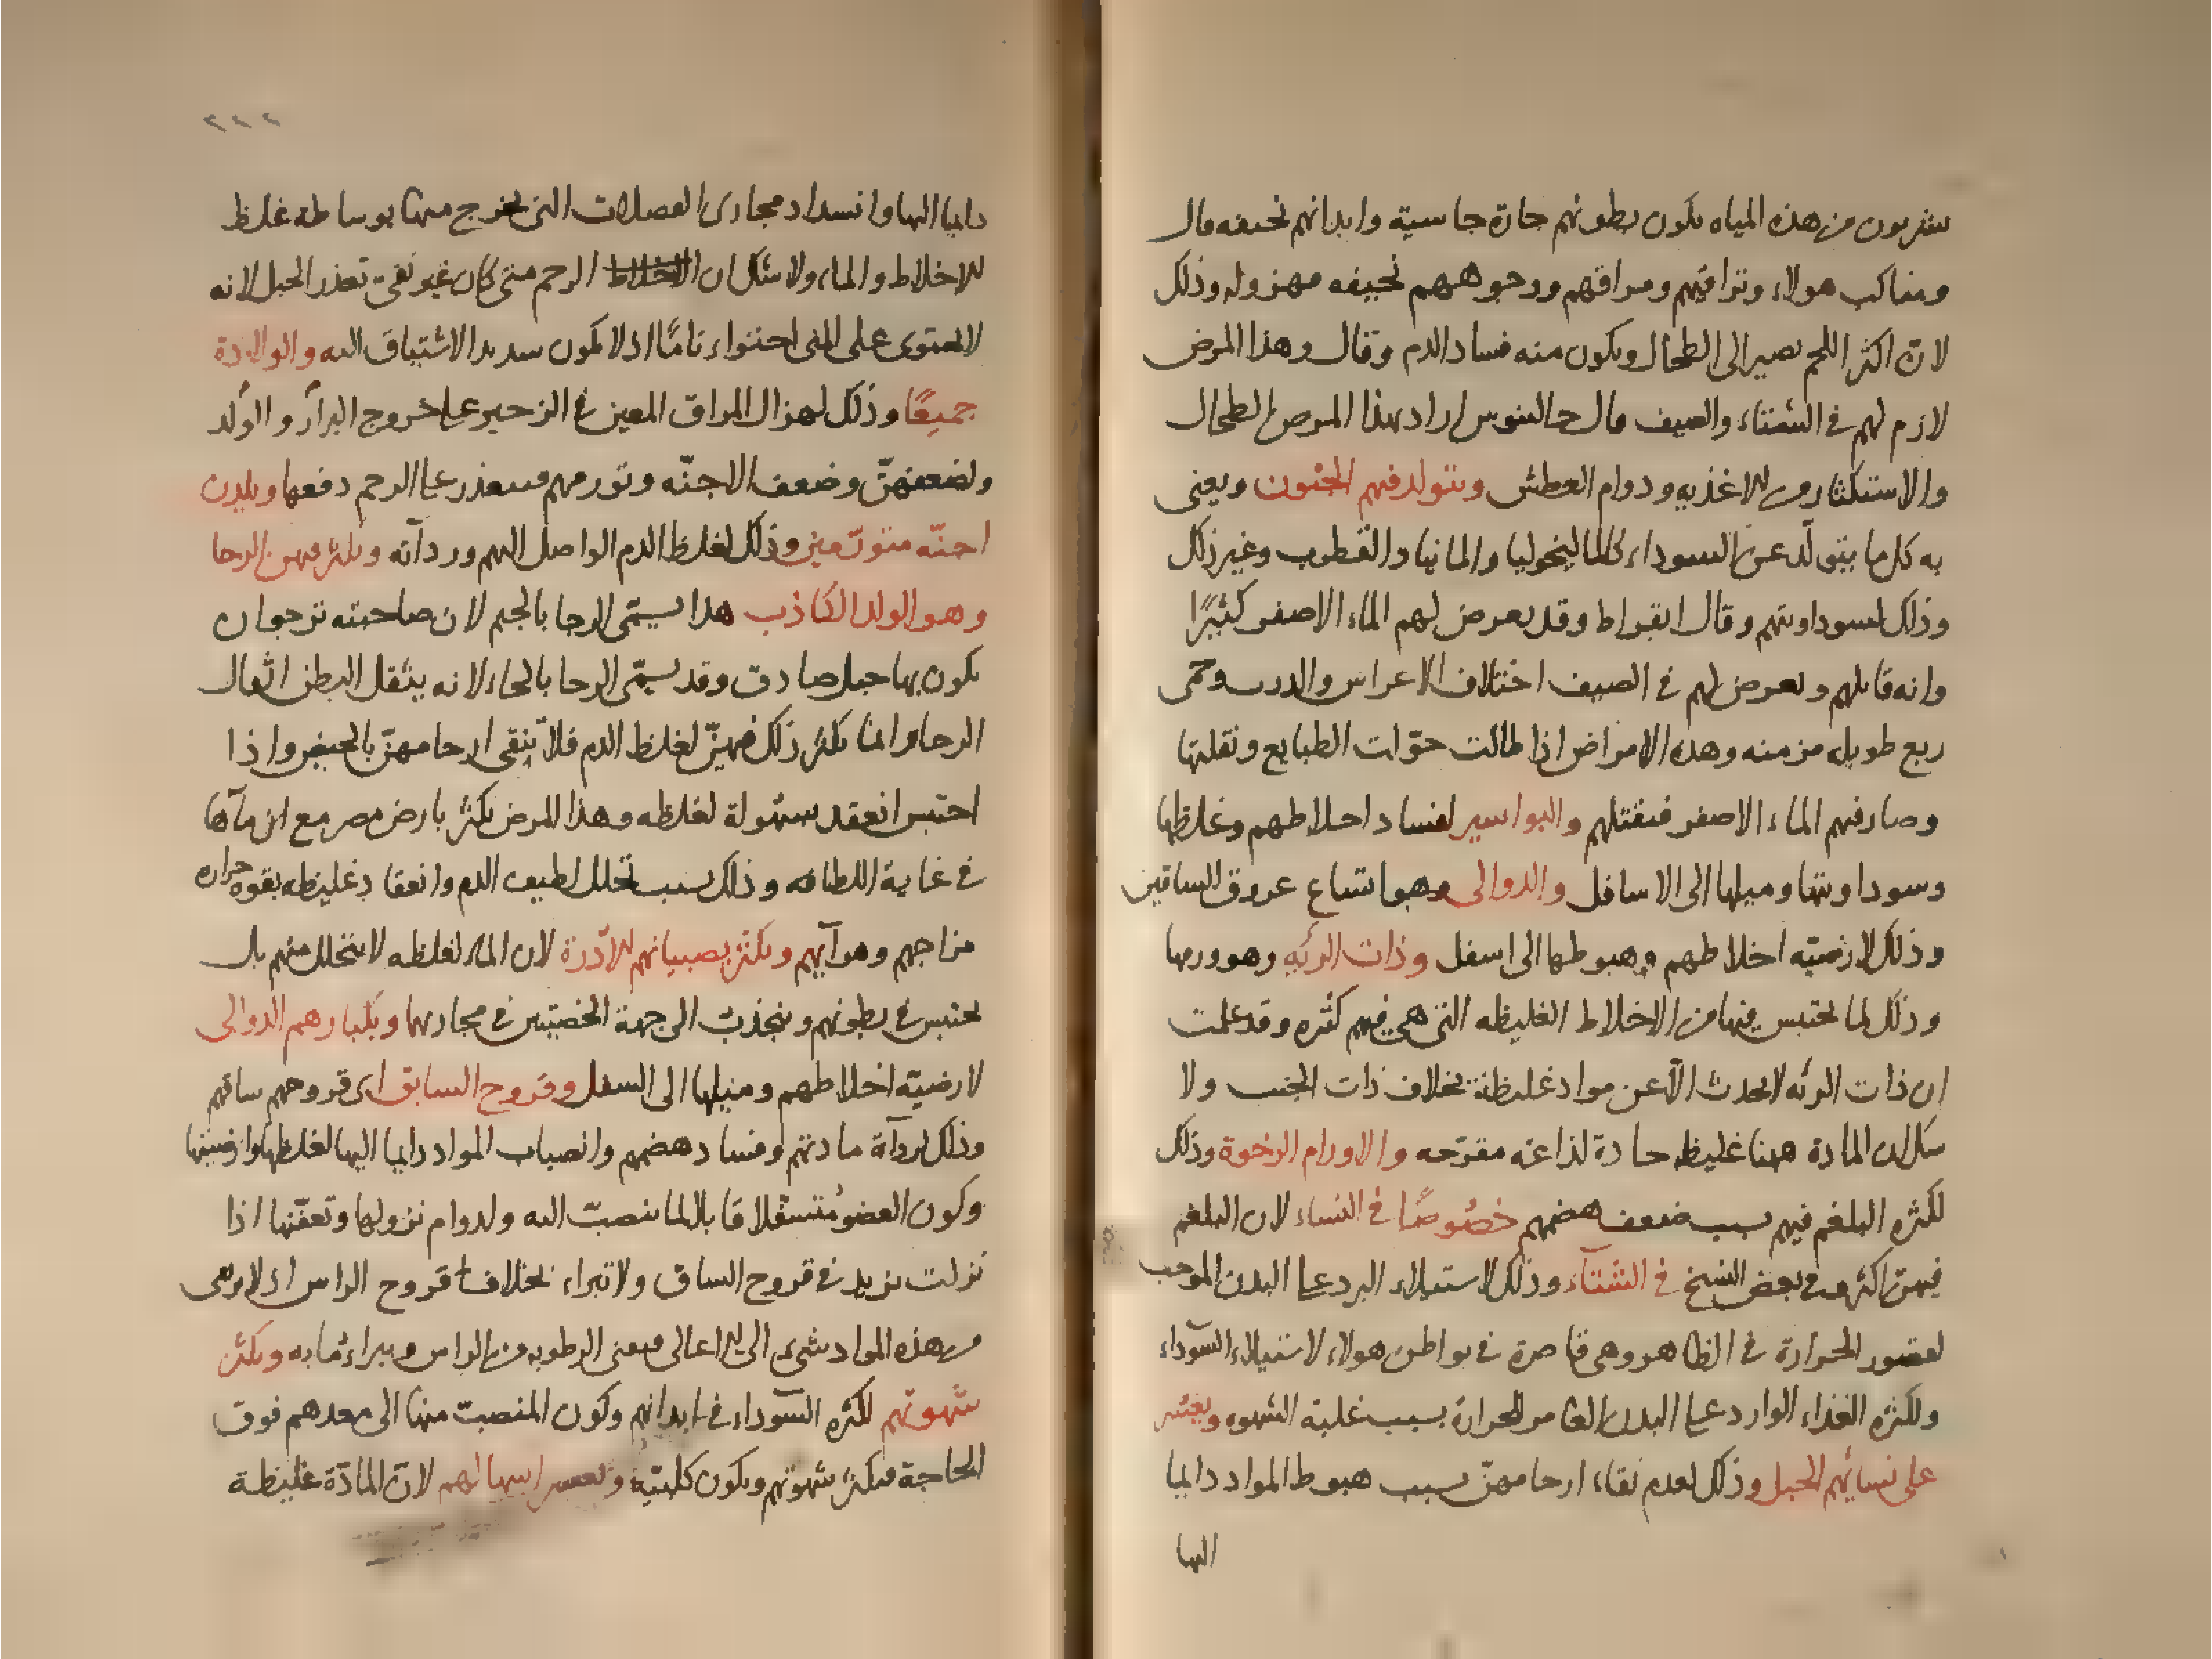 يشربون من هذه المياه يكون بطونهم حارة جاسية وابدانهم نحيفه قال
ومناكب هولاء وتراقيهم ومراقهم ووجوههم نحيفه مهزوله وذلك
لان اكثر اللحم يصير الى الطحال ويكون منه فساد الدم وقال وهذا المرض
لازم لهم في الشتاء والصيف قال جالينوس اراد بهذا المرض الطحال
والاستكثار من الاغذيه ودوام العطش ويتولد فيهم الجنون ويعنى
به كل ما يتولد عن السوداء كالماليخوليا والمانيا والقطرب وغير ذلك
وذلك لسوداويتهم وقال ابقراط وقد يعرض لهم الماء الاصفر كثيرًا
وانه قاتلهم ويعرض لهم في الصيف اختلاف الاعراس والذرب وحمى
ربع طويله مزمنه وهذه الامراض اذا طالت حولت الطبايع ونقلتها
وصار فيهم الماء الاصفر فيقتلهم والبواسير لفساد اخلاطهم وغلظها
وسوداويتها وميلها الى الاسافل والدوالى وهو اتساع عروق الساقين
وذلك لارضيه اخلاطهم وهبوطها الى اسفل وذات الرئه وهو ورمها
وذلك لما يحتبس فيها من الاخلاط الغليظه التى هي فيهم كثره وقد علمت
ان ذات الرئه لا تحدث الا عن مواد غليظة بخلاف ذات الجنب ولا
شك ان المادة ههنا غليظه حادة لذاعه مقرحه والاورام الرخوة وذلك
لكثره البلغم فيهم بسبب ضعف هضمهم خصوصًا في النساء لان البلغم
فيهن اكثر وفي بعض النسخ في الشتآء وذلك لاستيلاء البرد على البدن الموجب
لقصور الحرارة في الظاهر وهي قاصرة في بواطن هولاء لاستيلاء السوداء
ولكثره الغذاء الوارد على البدن الغامر للحرارة بسبب غلبة الشهوه ويعسر
على نسائهم الحبل وذلك لعدم نقاء ارحامهن بسبب هبوط المواد دايما
اليها
٢٢٢
دايما اليها وانسداد مجارى الفضلات التى تخرج منها بوساطة غلظ
الاخلاط والماء ولا شك ان الاخلاط الرحم متى كان غير نقى تعذر الحبل لانه
لا يحتوى على المنى احتواء تامًا اذ لا يكون شديد الاشتياق اليه والولادة
جميعًا وذلك لهزال المراق المعين في الزحير على خروج البراز والولد
ولضعفهن وضعف الاجنه وتورمهم فيتعذر على الرحم دفعها ويلدن
اجنه متورمين وذلك لغلظ الدم الواصل اليهم وردآته ويكثر فيهن الرحا
وهو الولد الكاذب هذا يسمى الرجا بالجيم لان صاحبته ترجوا ان
يكون بها حبل صادق وقد يسمى الرحا بالحاء لانه يثقل البطن اثقال
الرحا وانما يكثر ذلك فيهن لغلظ الدم فلا تنقى ارحامهن بالحيض واذا
احتبس انعقد بسهولة لغلظه وهذا المرض يكثر بارض مصر مع ان مآها
في غاية اللطافه وذلك بسبب تحلل لطيف الدم وانعقاد غليظه بقوه حراره
مزاجهم وهوآيهم ويكثر بصبيانهم الادرة لان الماء لغلظه لا يتحلل منهم بل
يحتبس في بطونهم وينجذب الى جهة الخصيتين في مجاريها وبكبارهم الدوالى
لارضيه اخلاطهم وميلها الى السفل وقروح الساق اى قروحهم ساقهم
وذلك لردآة مادتهم وفساد هضمهم وانصباب المواد دايما اليها لغلظها وارضيتها
وكون العضو متسفلا قابلا لما ينصب اليه ولدوام نزولها وتعفنها اذا
نزلت تزيد في قروح الساق ولا تبراء بخلاف قروح الراس اذ لا يرتقى
من هذه المواد شيء الى الاعالى فيفنى الرطوبه من الراس ويبراء ما به ويكثر
شهوتهم لكثره السوداء في ابدانهم وكون المنصب منها الى معدهم فوق
الحاجة فيكثر شهوتهم ويكون كلبيه ويعسر اسهالهم لان المادة غليظة